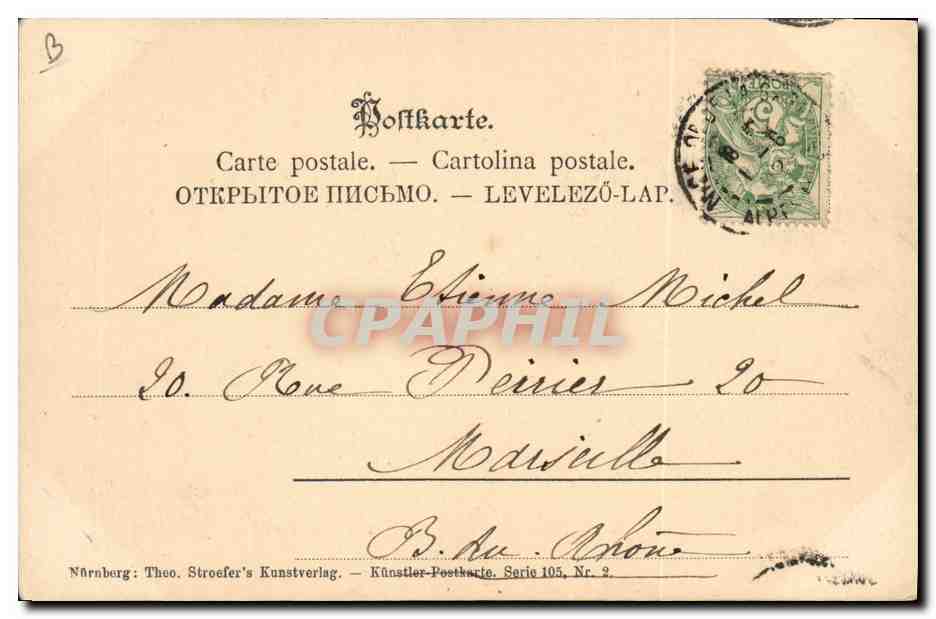 B
Postkarte.
Carte postale. — Cartolina postale.
ОТКРЫТОЕ ПИСЬМО. — LEVELEZŐ-LAP.
Madame Etienne Michel
CPAPHIL
20. Rue Perrier 20
Marseille
B. du. Rhône
Nürnberg: Theo. Stroefer's Kunstverlag. — Künstler-Postkarte. Serie 105, Nr. 2.